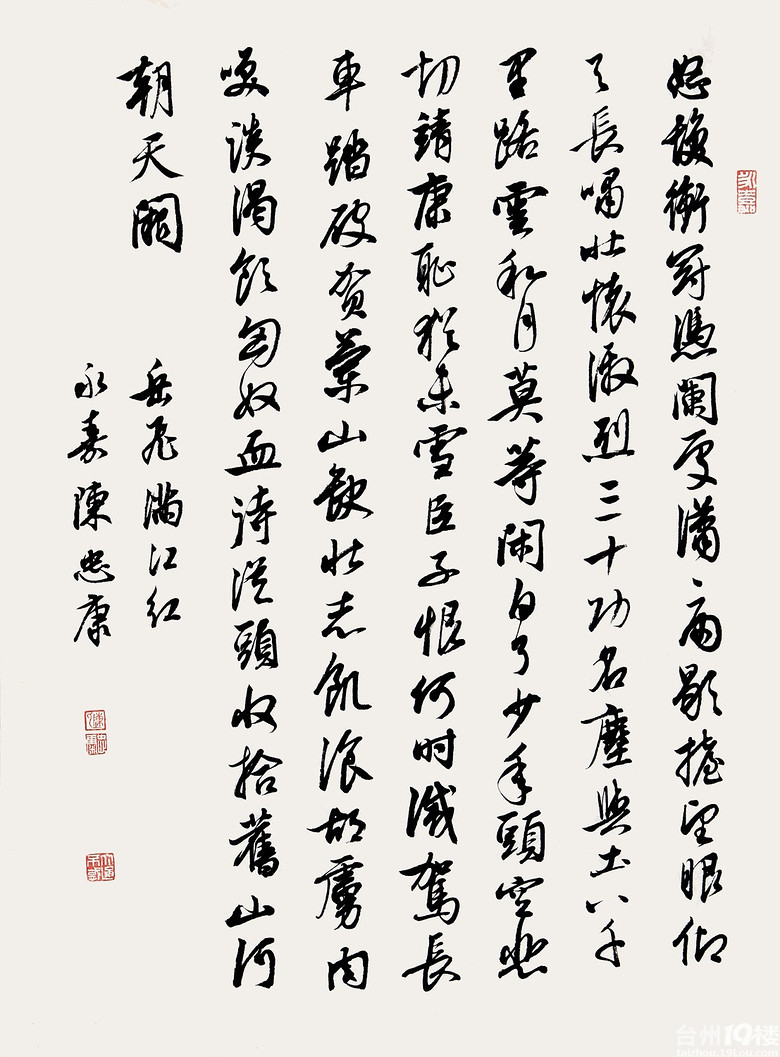 怒髮衝冠憑闌處瀟、雨歇擡望眼仰
天長嘯壯懷激烈三十功名塵與土八千
里路雲和月莫等閑白了少年頭空悲
切靖康恥猶未雪臣子恨何时滅駕長
車踏破賀蘭山缺壯志飢湌胡虜肉
笑談渴飲匈奴血待從頭收拾舊山河
朝天闕
岳飛滿江紅
永嘉陳忠康
台州19楼
taizhou.19lou.com